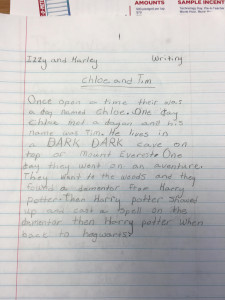 AMOUNTS
SAMPLE INCENT
1
Izzy and Harley Writing
Chloe and Tim
Once opon a time their was
a day named Chloe. One day
Chloe met a dragon and his
name was Tim. He lives in
a DARK DARK cave on
top of Mount Everste One
day they went on an aventure.
They went to the woods and they
found a dementor from Harry
potter. Then Harry potter showed
up and cast a spell on the
dementor then Harry potter when
back to hogwarts